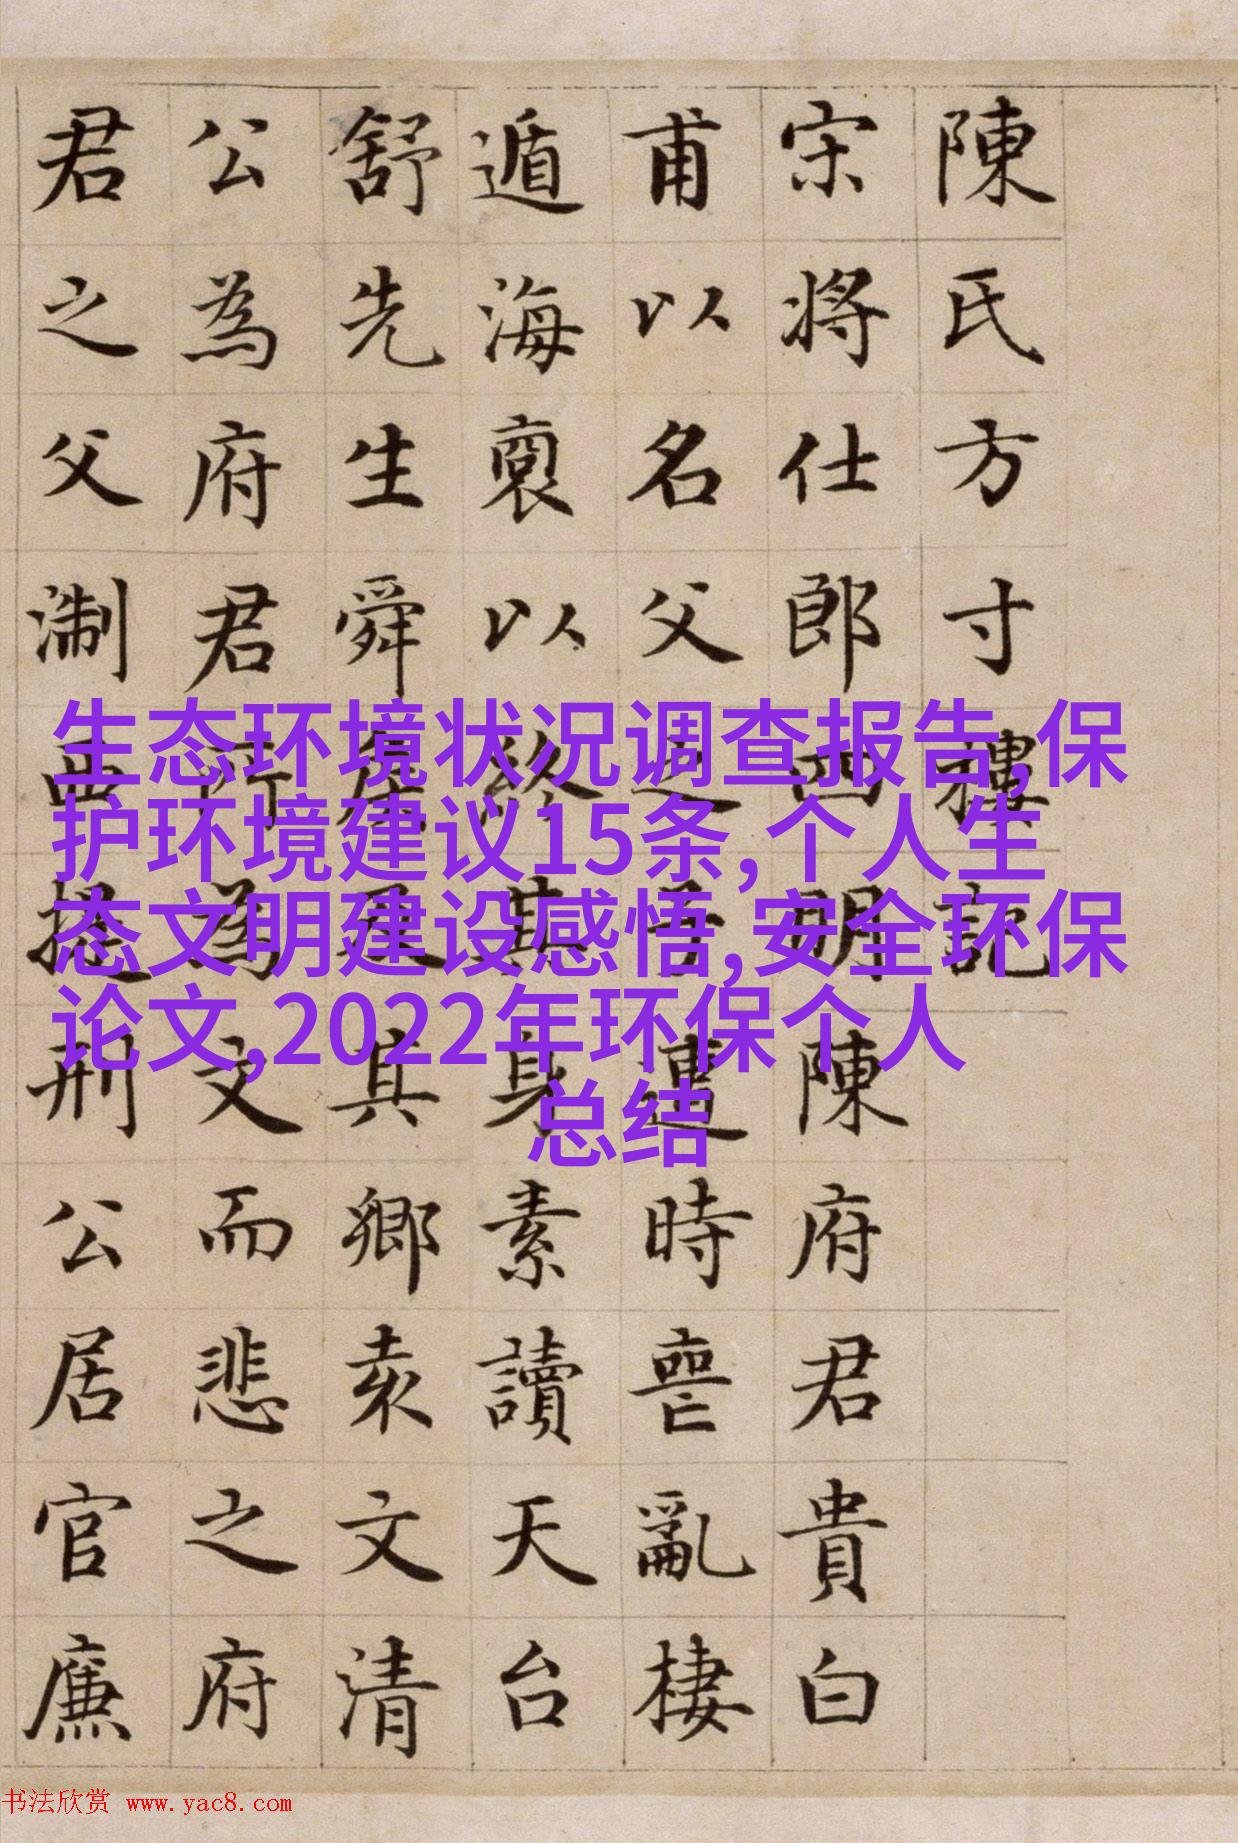 陳氏方寸樓記
宋將仕郎四明陳府君貴白
甫以名父之子遭時喪亂棲
遁海裔以終其身素讀天台
舒先生舜其鄉袁文清
公為府君所為文而悲之府
君之父淛西提刑公居官廉
生态环境状况调查报告,保
护环境建议15条,个人生
态文明建设感悟,安全环保
论文,2022年环保个人
总结
书法欣赏 www.yac8.com